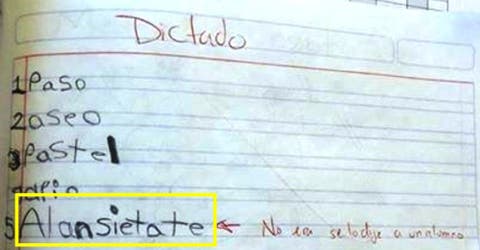 Dictado
1 Paso
2 aseo
3 Pastel
5 Alansietate ← No era se lo dije a un alumno